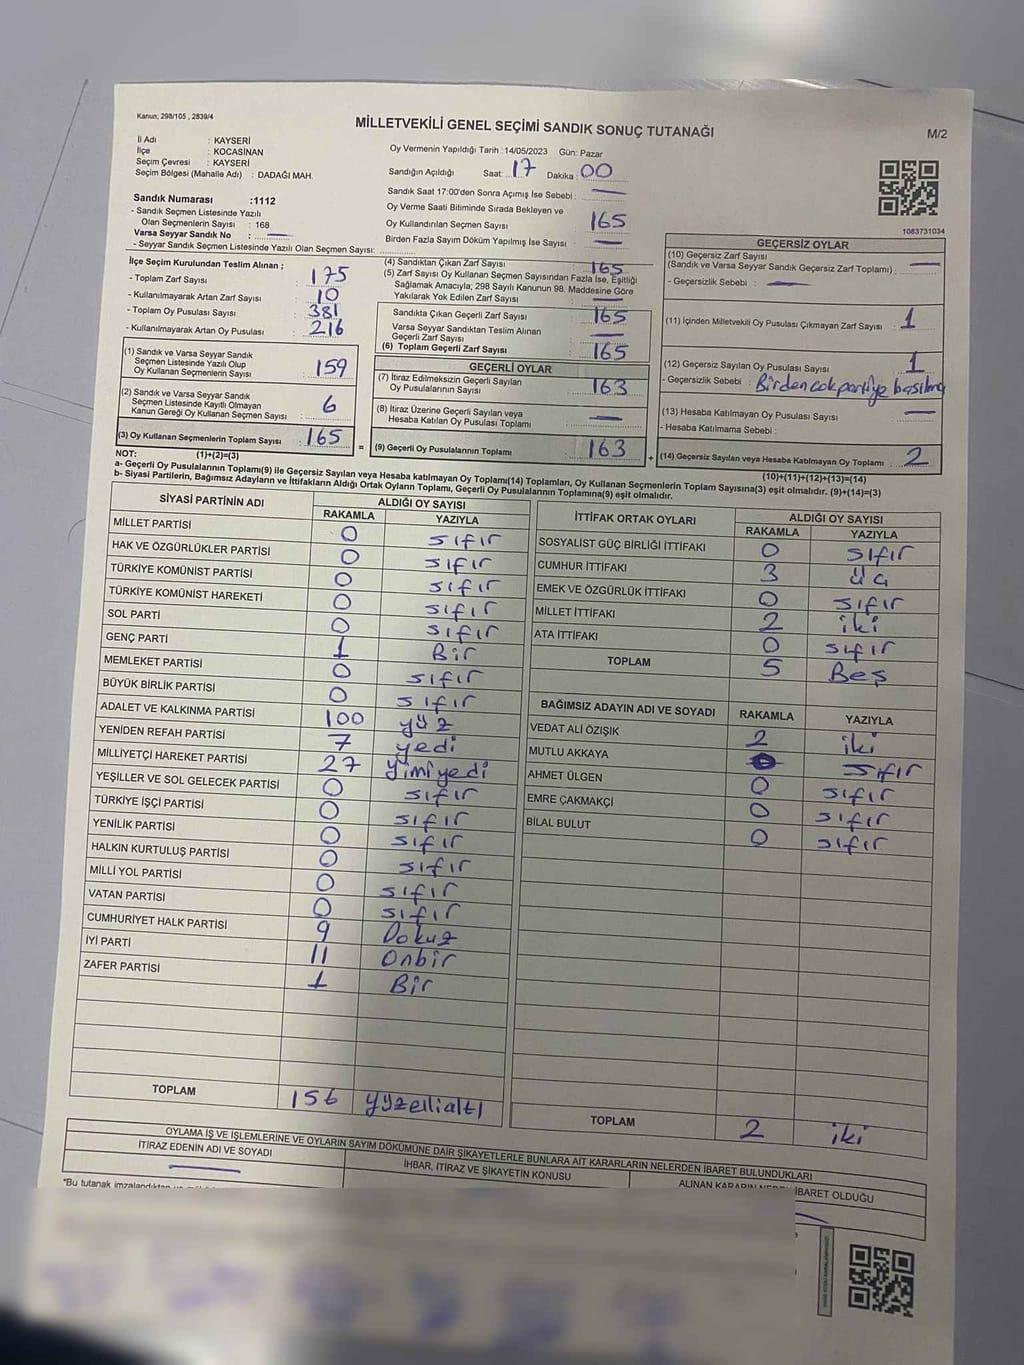 Kanun; 298/105 , 2839/4
MİLLETVEKİLİ GENEL SEÇİMİ SANDIK SONUÇ TUTANAĞI
M/2
İl Adı : KAYSERİ
İlçe : KOCASİNAN
Seçim Çevresi : KAYSERİ
Seçim Bölgesi (Mahalle Adı) : DADAĞI MAH.
Oy Vermenin Yapıldığı Tarih :14/05/2023 Gün: Pazar
Sandığın Açıldığı Saat: 17 Dakika : 00
Sandık Saat 17:00'den Sonra Açımış İse Sebebi : —
Sandık Numarası :1112
- Sandık Seçmen Listesinde Yazılı
Olan Seçmenlerin Sayısı : 168
Varsa Seyyar Sandık No : —
- Seyyar Sandık Seçmen Listesinde Yazılı Olan Seçmen Sayısı:
Oy Verme Saati Bitiminde Sırada Bekleyen ve
Oy Kullandırılan Seçmen Sayısı : 165
Birden Fazla Sayım Döküm Yapılmış İse Sayısı : —
1083731034
İlçe Seçim Kurulundan Teslim Alınan ;
- Toplam Zarf Sayısı : 175
- Kullanılmayarak Artan Zarf Sayısı : 10
- Toplam Oy Pusulası Sayısı : 381
- Kullanılmayarak Artan Oy Pusulası : 216
(1) Sandık ve Varsa Seyyar Sandık
Seçmen Listesinde Yazılı Olup
Oy Kullanan Seçmenlerin Sayısı : 159
(2) Sandık ve Varsa Seyyar Sandık
Seçmen Listesinde Kayıtlı Olmayan
Kanun Gereği Oy Kullanan Seçmen Sayısı : 6
(3) Oy Kullanan Seçmenlerin Toplam Sayısı : 165
(4) Sandıktan Çıkan Zarf Sayısı : 165
(5) Zarf Sayısı Oy Kullanan Seçmen Sayısından Fazla İse, Eşitliği
Sağlamak Amacıyla; 298 Sayılı Kanunun 98. Maddesine Göre
Yakılarak Yok Edilen Zarf Sayısı : —
Sandıkta Çıkan Geçerli Zarf Sayısı : 165
Varsa Seyyar Sandıktan Teslim Alınan
Geçerli Zarf Sayısı : —
(6) Toplam Geçerli Zarf Sayısı : 165
GEÇERLİ OYLAR
(7) İtiraz Edilmeksizin Geçerli Sayılan
Oy Pusulalarının Sayısı : 163
(8) İtiraz Üzerine Geçerli Sayılan veya
Hesaba Katılan Oy Pusulası Toplamı : —
= (9) Geçerli Oy Pusulalarının Toplamı : 163
GEÇERSİZ OYLAR
(10) Geçersiz Zarf Sayısı
(Sandık ve Varsa Seyyar Sandık Geçersiz Zarf Toplamı) : —
- Geçersizlik Sebebi : —
(11) İçinden Milletvekili Oy Pusulası Çıkmayan Zarf Sayısı : 1
(12) Geçersiz Sayılan Oy Pusulası Sayısı : 1
- Geçersizlik Sebebi : Birden cok partiye basılma
(13) Hesaba Katılmayan Oy Pusulası Sayısı : —
- Hesaba Katılmama Sebebi :
+ (14) Geçersiz Sayılan veya Hesaba Katılmayan Oy Toplamı : 2
NOT: (1)+(2)=(3)
(10)+(11)+(12)+(13)=(14)
a- Geçerli Oy Pusulalarının Toplamı(9) ile Geçersiz Sayılan veya Hesaba katılmayan Oy Toplamı(14) Toplamları, Oy Kullanan Seçmenlerin Toplam Sayısına(3) eşit olmalıdır. (9)+(14)=(3)
b- Siyasi Partilerin, Bağımsız Adayların ve İttifakların Aldığı Ortak Oyların Toplamı, Geçerli Oy Pusulalarının Toplamına(9) eşit olmalıdır.
SİYASİ PARTİNİN ADI ALDIĞI OY SAYISI
RAKAMLA YAZIYLA
MİLLET PARTİSİ 0 sıfır
HAK VE ÖZGÜRLÜKLER PARTİSİ 0 sıfır
TÜRKİYE KOMÜNİST PARTİSİ 0 sıfır
TÜRKİYE KOMÜNİST HAREKETİ 0 sıfır
SOL PARTİ 0 sıfır
GENÇ PARTİ 1 Bir
MEMLEKET PARTİSİ 0 sıfır
BÜYÜK BİRLİK PARTİSİ 0 sıfır
ADALET VE KALKINMA PARTİSİ 100 yüz
YENİDEN REFAH PARTİSİ 7 yedi
MİLLİYETÇİ HAREKET PARTİSİ 27 yimiyedi
YEŞİLLER VE SOL GELECEK PARTİSİ 0 sıfır
TÜRKİYE İŞÇİ PARTİSİ 0 sıfır
YENİLİK PARTİSİ 0 sıfır
HALKIN KURTULUŞ PARTİSİ 0 sıfır
MİLLİ YOL PARTİSİ 0 sıfır
VATAN PARTİSİ 0 sıfır
CUMHURİYET HALK PARTİSİ 9 Dokuz
İYİ PARTİ 11 Onbir
ZAFER PARTİSİ 1 Bir
TOPLAM 156 yüzellialtı
İTTİFAK ORTAK OYLARI ALDIĞI OY SAYISI
RAKAMLA YAZIYLA
SOSYALİST GÜÇ BİRLİĞİ İTTİFAKI 0 sıfır
CUMHUR İTTİFAKI 3 üç
EMEK VE ÖZGÜRLÜK İTTİFAKI 0 sıfır
MİLLET İTTİFAKI 2 iki
ATA İTTİFAKI 0 sıfır
TOPLAM 5 Beş
BAĞIMSIZ ADAYIN ADI VE SOYADI RAKAMLA YAZIYLA
VEDAT ALİ ÖZIŞIK 2 iki
MUTLU AKKAYA 0 sıfır
AHMET ÜLGEN 0 sıfır
EMRE ÇAKMAKÇİ 0 sıfır
BİLAL BULUT 0 sıfır
TOPLAM 2 iki
OYLAMA İŞ VE İŞLEMLERİNE VE OYLARIN SAYIM DÖKÜMÜNE DAİR ŞİKAYETLERLE BUNLARA AİT KARARLARIN NELERDEN İBARET BULUNDUKLARI
İTİRAZ EDENİN ADI VE SOYADI
İHBAR, İTİRAZ VE ŞİKAYETİN KONUSU
ALINAN KARARIN İBARET OLDUĞU
*Bu tutanak imzalandıktan